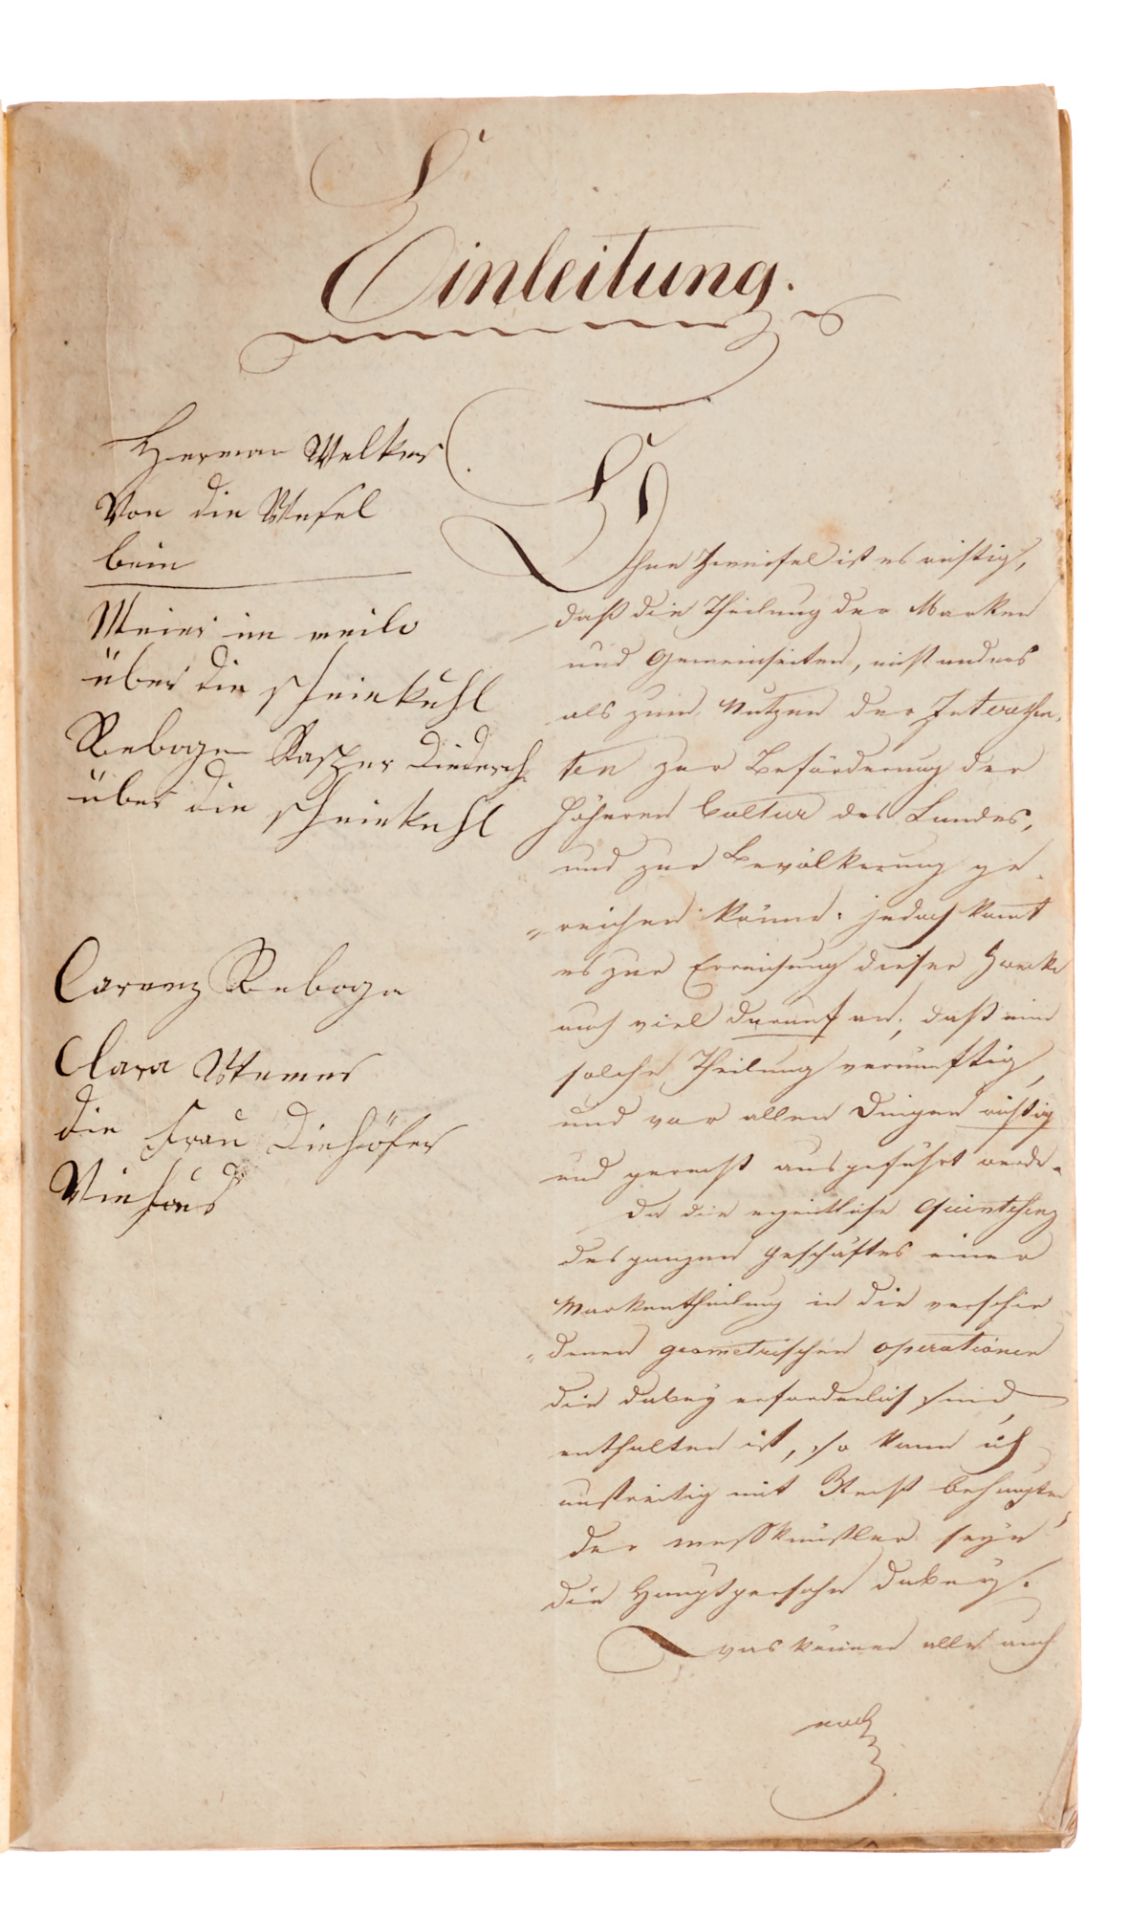 Einleitung.
Herman Welker
Von die Wesel
bein
Meier im weile
über die scheinkuhl
Reboge Kasper Diederch
über die scheinkuhl
Carenz Reboge
Clara Wemer
die Frau Diehöfer
Viehaus
Ohne Zweifel ist es richtig,
daß die Theilung der Marken
und Gemeinheiten, nicht anders
als zum Nutzen der Interessen,
ten zur Beförderung der
höheren Cultur des Landes,
und zur Bevölkerung ge„
„reichen könne. jedoch komt
es zur Erreichung dieser Zwecke
auch viel darauf an; daß eine
solche Theilung vernünftig,
und vor allen Dingen richtig
und gerecht ausgeführt werde.
Da die eigentliche Quintessenz
des ganzen Geschäftes einer
Markentheilung in die verschie
„denen geometrischen operationen
die dabey erforderlich sind,
enthalten ist, so kann ich
unstreitig mit Recht behaupten
der messkünstler seÿe
die Hauptperson dabeÿ.
was können alle auch
noch